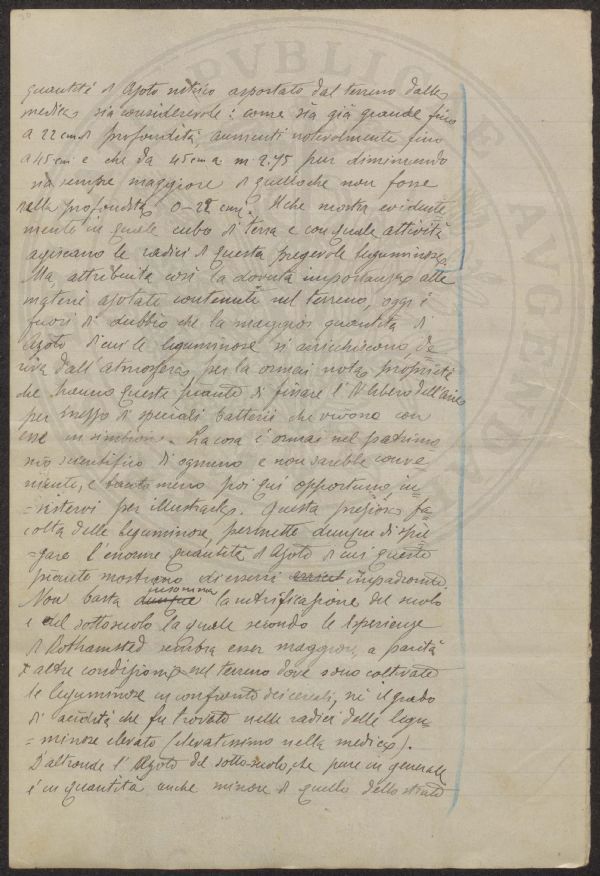 quantità d'Azoto nitrico asportato dal terreno dalla
medica sia considerevole: come sia già grande fino
a 22 cm di profondità aumenti notevolmente fino
a 45 cm e che da 45 cm a m 2.75 pur diminuendo
sia sempre maggiore di quello che non fosse
nella profondità 0-22 cm. Il che mostra evidente
mente in quale cubo di terra e con quale attività
agiscano le radici di questa pregevole leguminosa.
Ma, attribuita così la dovuta importanza alle
materie azotate contenute nel terreno, oggi è
fuori di dubbio che la maggior quantità di
Azoto di cui le leguminose si arricchiscono de
riva dall'atmosfera per la ormai nota proprietà
che hanno queste piante di fissare l'N libero dell'aria
per mezzo di speciali batterii che vivono con
esse in simbiosi. La cosa è ormai nel patrimo
nio scientifico di ognuno e non sarebbe conve
niente, e tanto meno poi qui opportuno in-
=sistervi per illustrarla. Questa preziosa fa-
coltà delle leguminose, permette dunque di spie
=gare l'enorme quantità d'Azoto di cui queste
piante mostrano di essersi impadronite
Non basta dunque insomma la nitrificazione del suolo
e del sottosuolo la quale secondo le esperienze
di Rothamsted sembra esser maggiore, a parità
di altre condizioni, nel terreno dove sono coltivate
le leguminose in confronto dei cereali, nè il grado
di acidità che fu trovato nelle radici delle legu-
=minose elevato (elevatissimo nella medica).
D'altronde l'Azoto del sotto-suolo, che pure in generale
è in quantità anche minore di quello dello strato